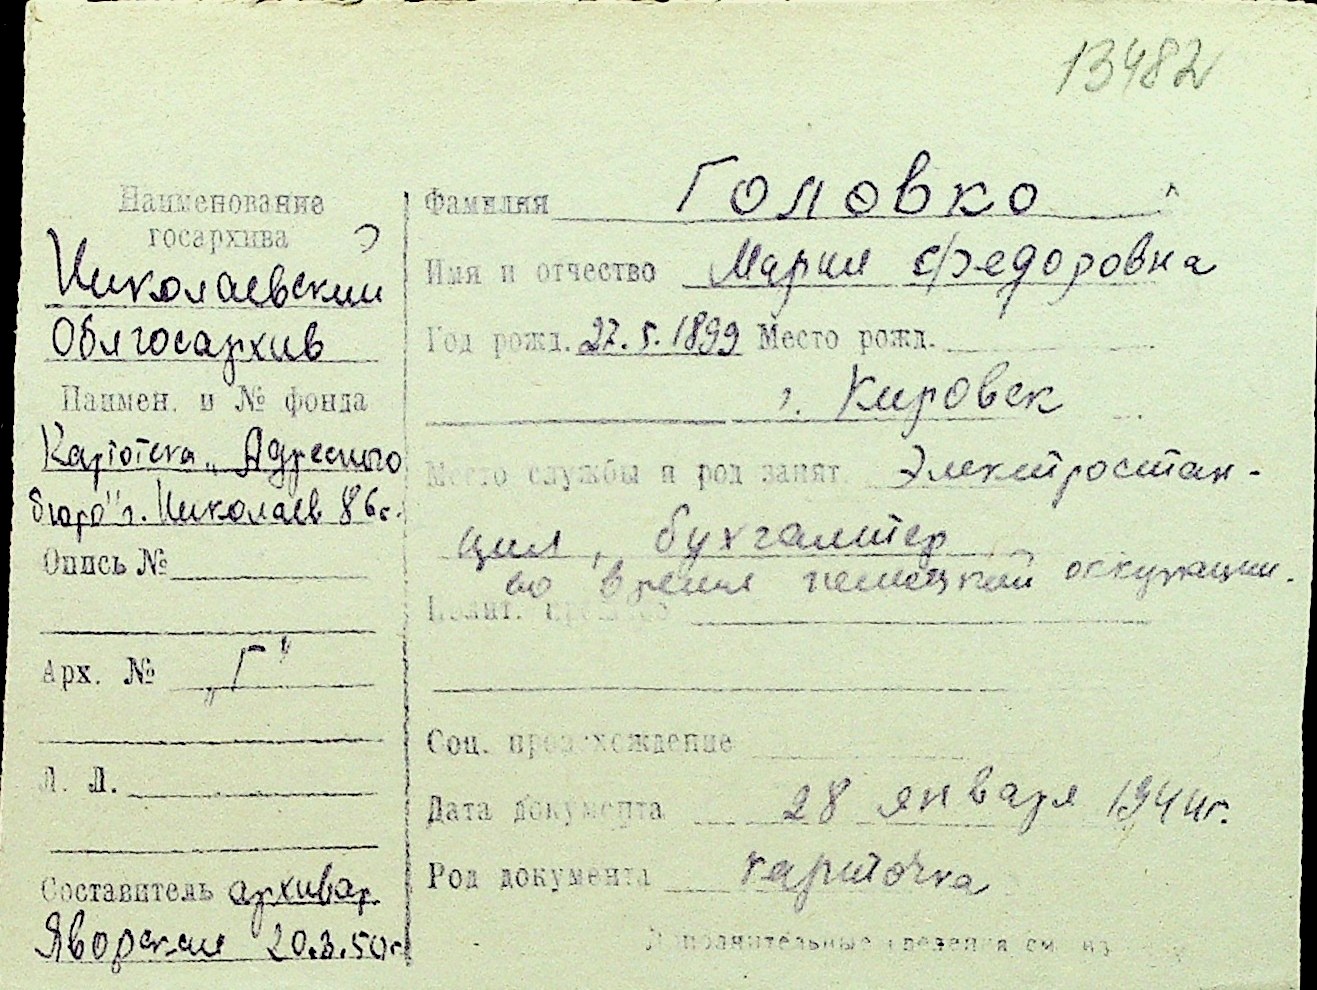 13482
Наименование
госархива
Николаевский
Облгосархив
Наимен. и № фонда
Картотека „Адресного
бюро" г. Николаев 86г.
Опись №
Арх. № „Г"
Л. Л.
Составитель архивар.
Яворская 20.3.50г.
Фамилия Головко
Имя и отчество Мария Федоровна
Год рожд. 27.5.1899 Место рожд.
г. Кировск
Место службы и род занят. Электростан-
ция, бухгалтер
во время немецкой оккупации.
Полит.
Соц. происхождение
Дата документа 28 января 1944г.
Род документа карточка
Дополнительные сведения см. на